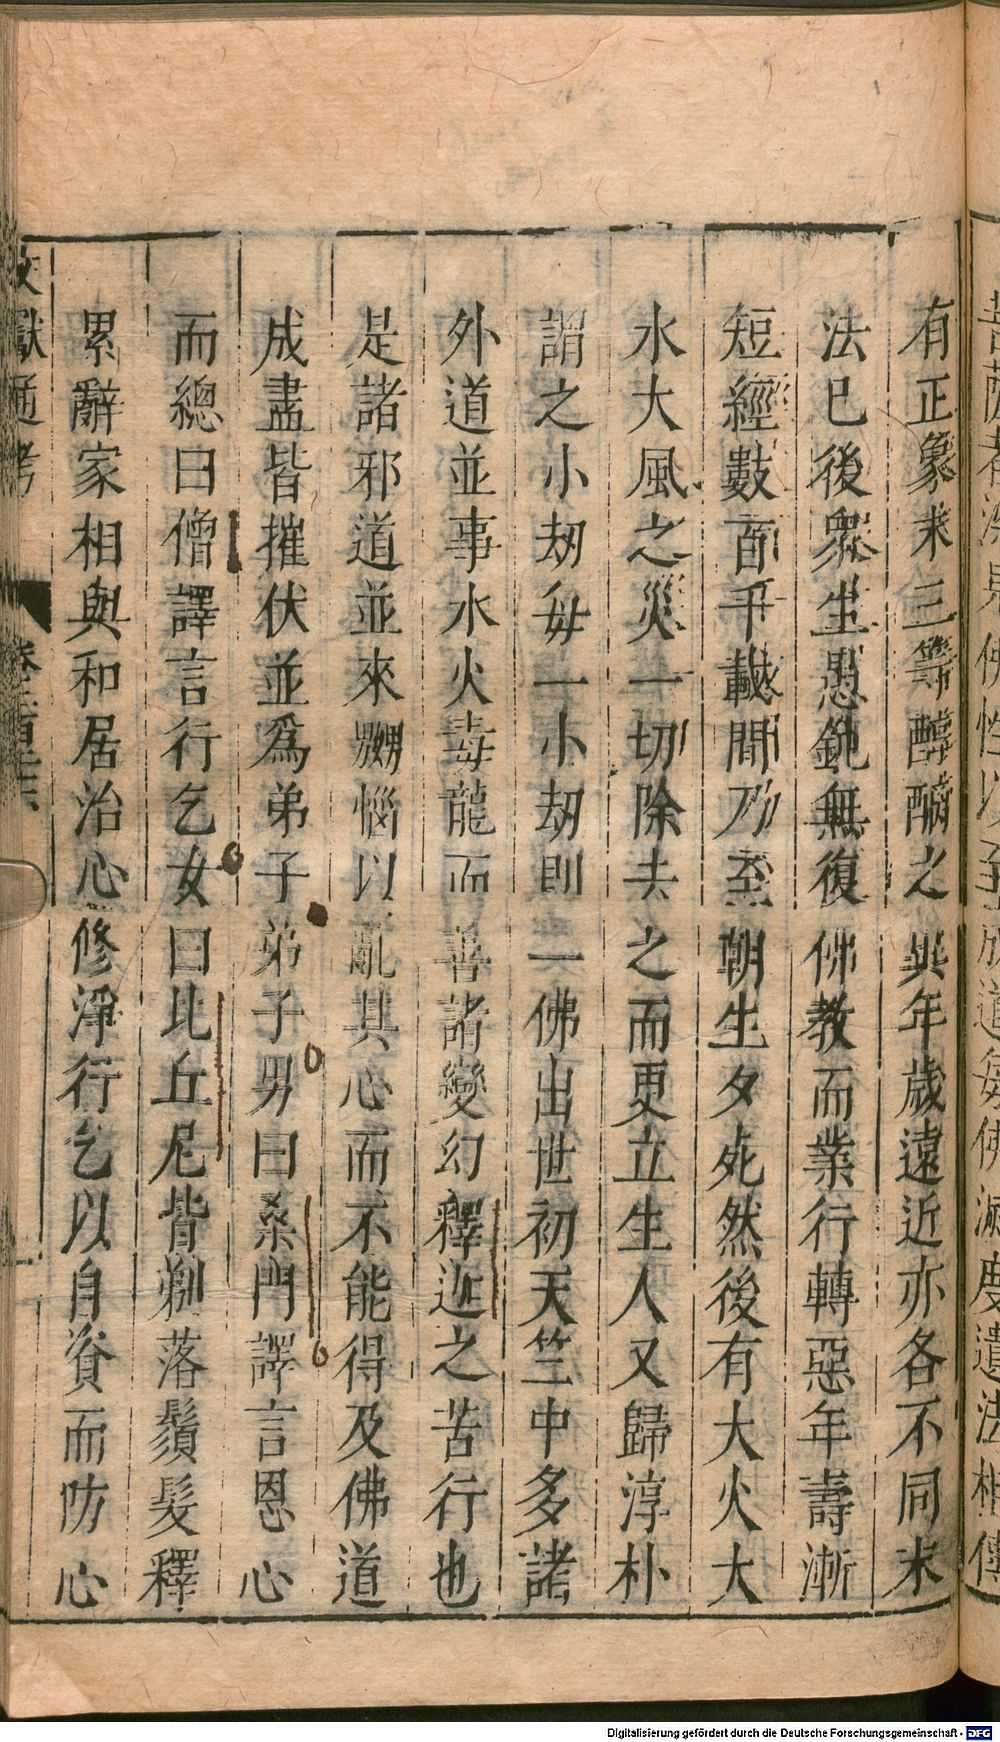 菩薩者深見佛性以至成道每佛滅度遺法相傳
有正象末三等醇醨之異年歲遠近亦各不同末
法已後衆生愚鈍無復佛教而業行轉惡年壽漸
短經數百千載間乃至朝生夕死然後有大火大
水大風之災一切除去之而更立生人又歸淳朴
謂之小劫每一小劫則一佛出世初天竺中多諸
外道並事水火毒龍而善諸變幻釋迦之苦行也
是諸邪道並來嬲惱以亂其心而不能得及佛道
成盡皆摧伏並爲弟子弟子男曰桑門譯言恩心
而總曰僧譯言行乞女曰比丘尼皆剃落鬚髮釋
累辭家相與和居治心修淨行乞以自資而防心
文獻通考
Digitalisierung gefördert durch die Deutsche Forschungsgemeinschaft - DFG